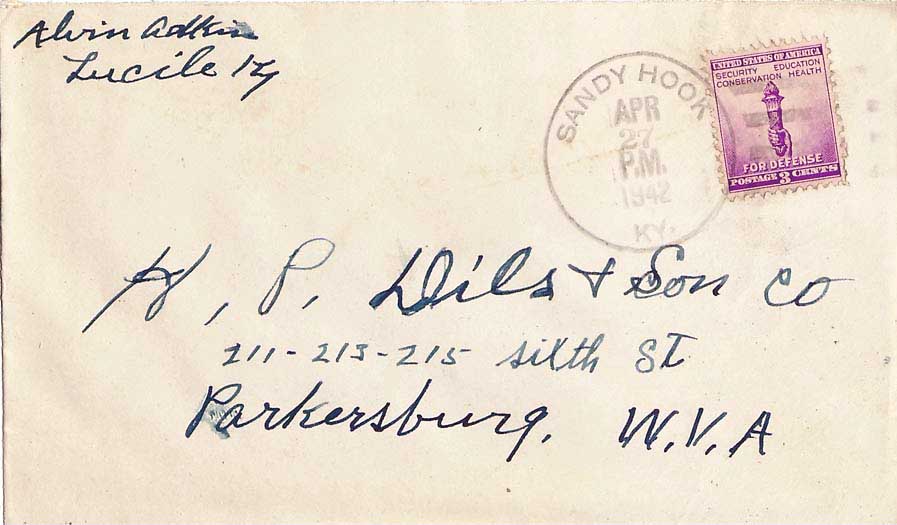 Alvin Adkin
Lucile Ky
SANDY HOOK
APR
27
P.M.
1942
KY.
UNITED STATES OF AMERICA
SECURITY EDUCATION
CONSERVATION HEALTH
FOR DEFENSE
POSTAGE 3 CENTS
H, P, Dils & Son Co
211-213-215 sixth St
Parkersburg, W.V.A